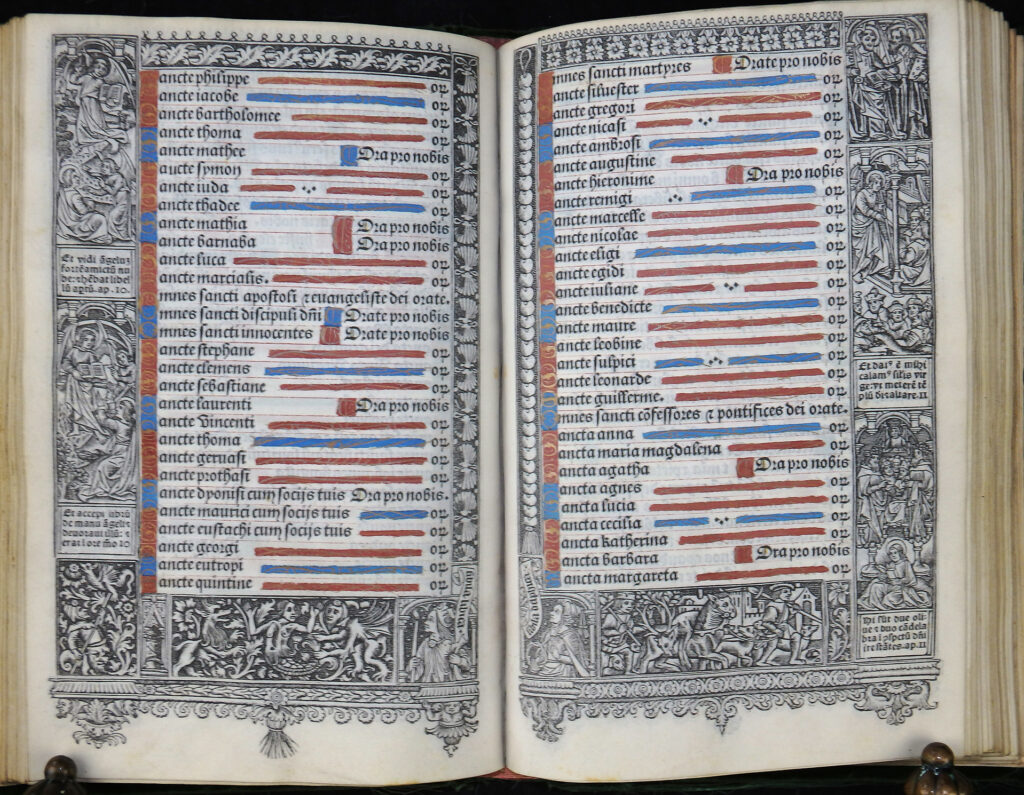 Sancte philippe or
Sancte iacobe or
Sancte bartholomee or
Sancte thoma or
Sancte mathee Ora pro nobis
Sancte symon or
Sancte iuda or
Sancte thadee or
Sancte mathia Ora pro nobis
Sancte barnaba Ora pro nobis
Sancte luca or
Sancte marcialis. or
Omnes sancti apostoli ⁊ euangeliste dei orate.
Omnes sancti discipuli dñi Orate pro nobis
Omnes sancti innocentes Orate pro nobis
Sancte stephane or
Sancte clemens or
Sancte sebastiane or
Sancte laurenti Ora pro nobis
Sancte Vincenti or
Sancte thoma or
Sancte geruasi or
Sancte prothasi or
Sancte dyonisi cum socijs tuis Ora pro nobis.
Sancte maurici cum socijs tuis or
Sancte eustachi cum socijs tuis or
Sancte georgi or
Sancte eutropi or
Sancte quintine or
Et vidi ãgeluʒ
fortẽ amictũ nu
be: ⁊ hẽbat libel
lũ aptũ. ap. 10.
Et accepi librũ
de manu ãgeli: ⁊
deuoraui illũ: ⁊
erat i ore meo 10
Omnes sancti martyres Orate pro nobis
Sancte siluester or
Sancte gregori or
Sancte nicasi or
Sancte ambrosi or
Sancte augustine or
Sancte hieronime Ora pro nobis
Sancte remigi or
Sancte marcelle or
Sancte nicolae or
Sancte eligi or
Sancte egidi or
Sancte iuliane or
Sancte benedicte or
Sancte maure or
Sancte leobine or
Sancte sulpici or
Sancte leonarde or
Sancte guillerme. or
Omnes sancti cõfessores ⁊ pontifices dei orate.
Sancta anna or
Sancta maria magdalena or
Sancta agatha Ora pro nobis
Sancta agnes or
Sancta lucia or
Sancta cecilia or
Sancta katherina or
Sancta barbara Ora pro nobis
Sancta margareta or
Et datꝰ ẽ mihi
calamꝰ silis vir
ge: vt metirer tẽ
plũ di ⁊ altare. 11
Hi sũt due oli
ue ⁊ duo cãdela
bra ĩ ꝯspctũ dñi
stãtes. ap. 11